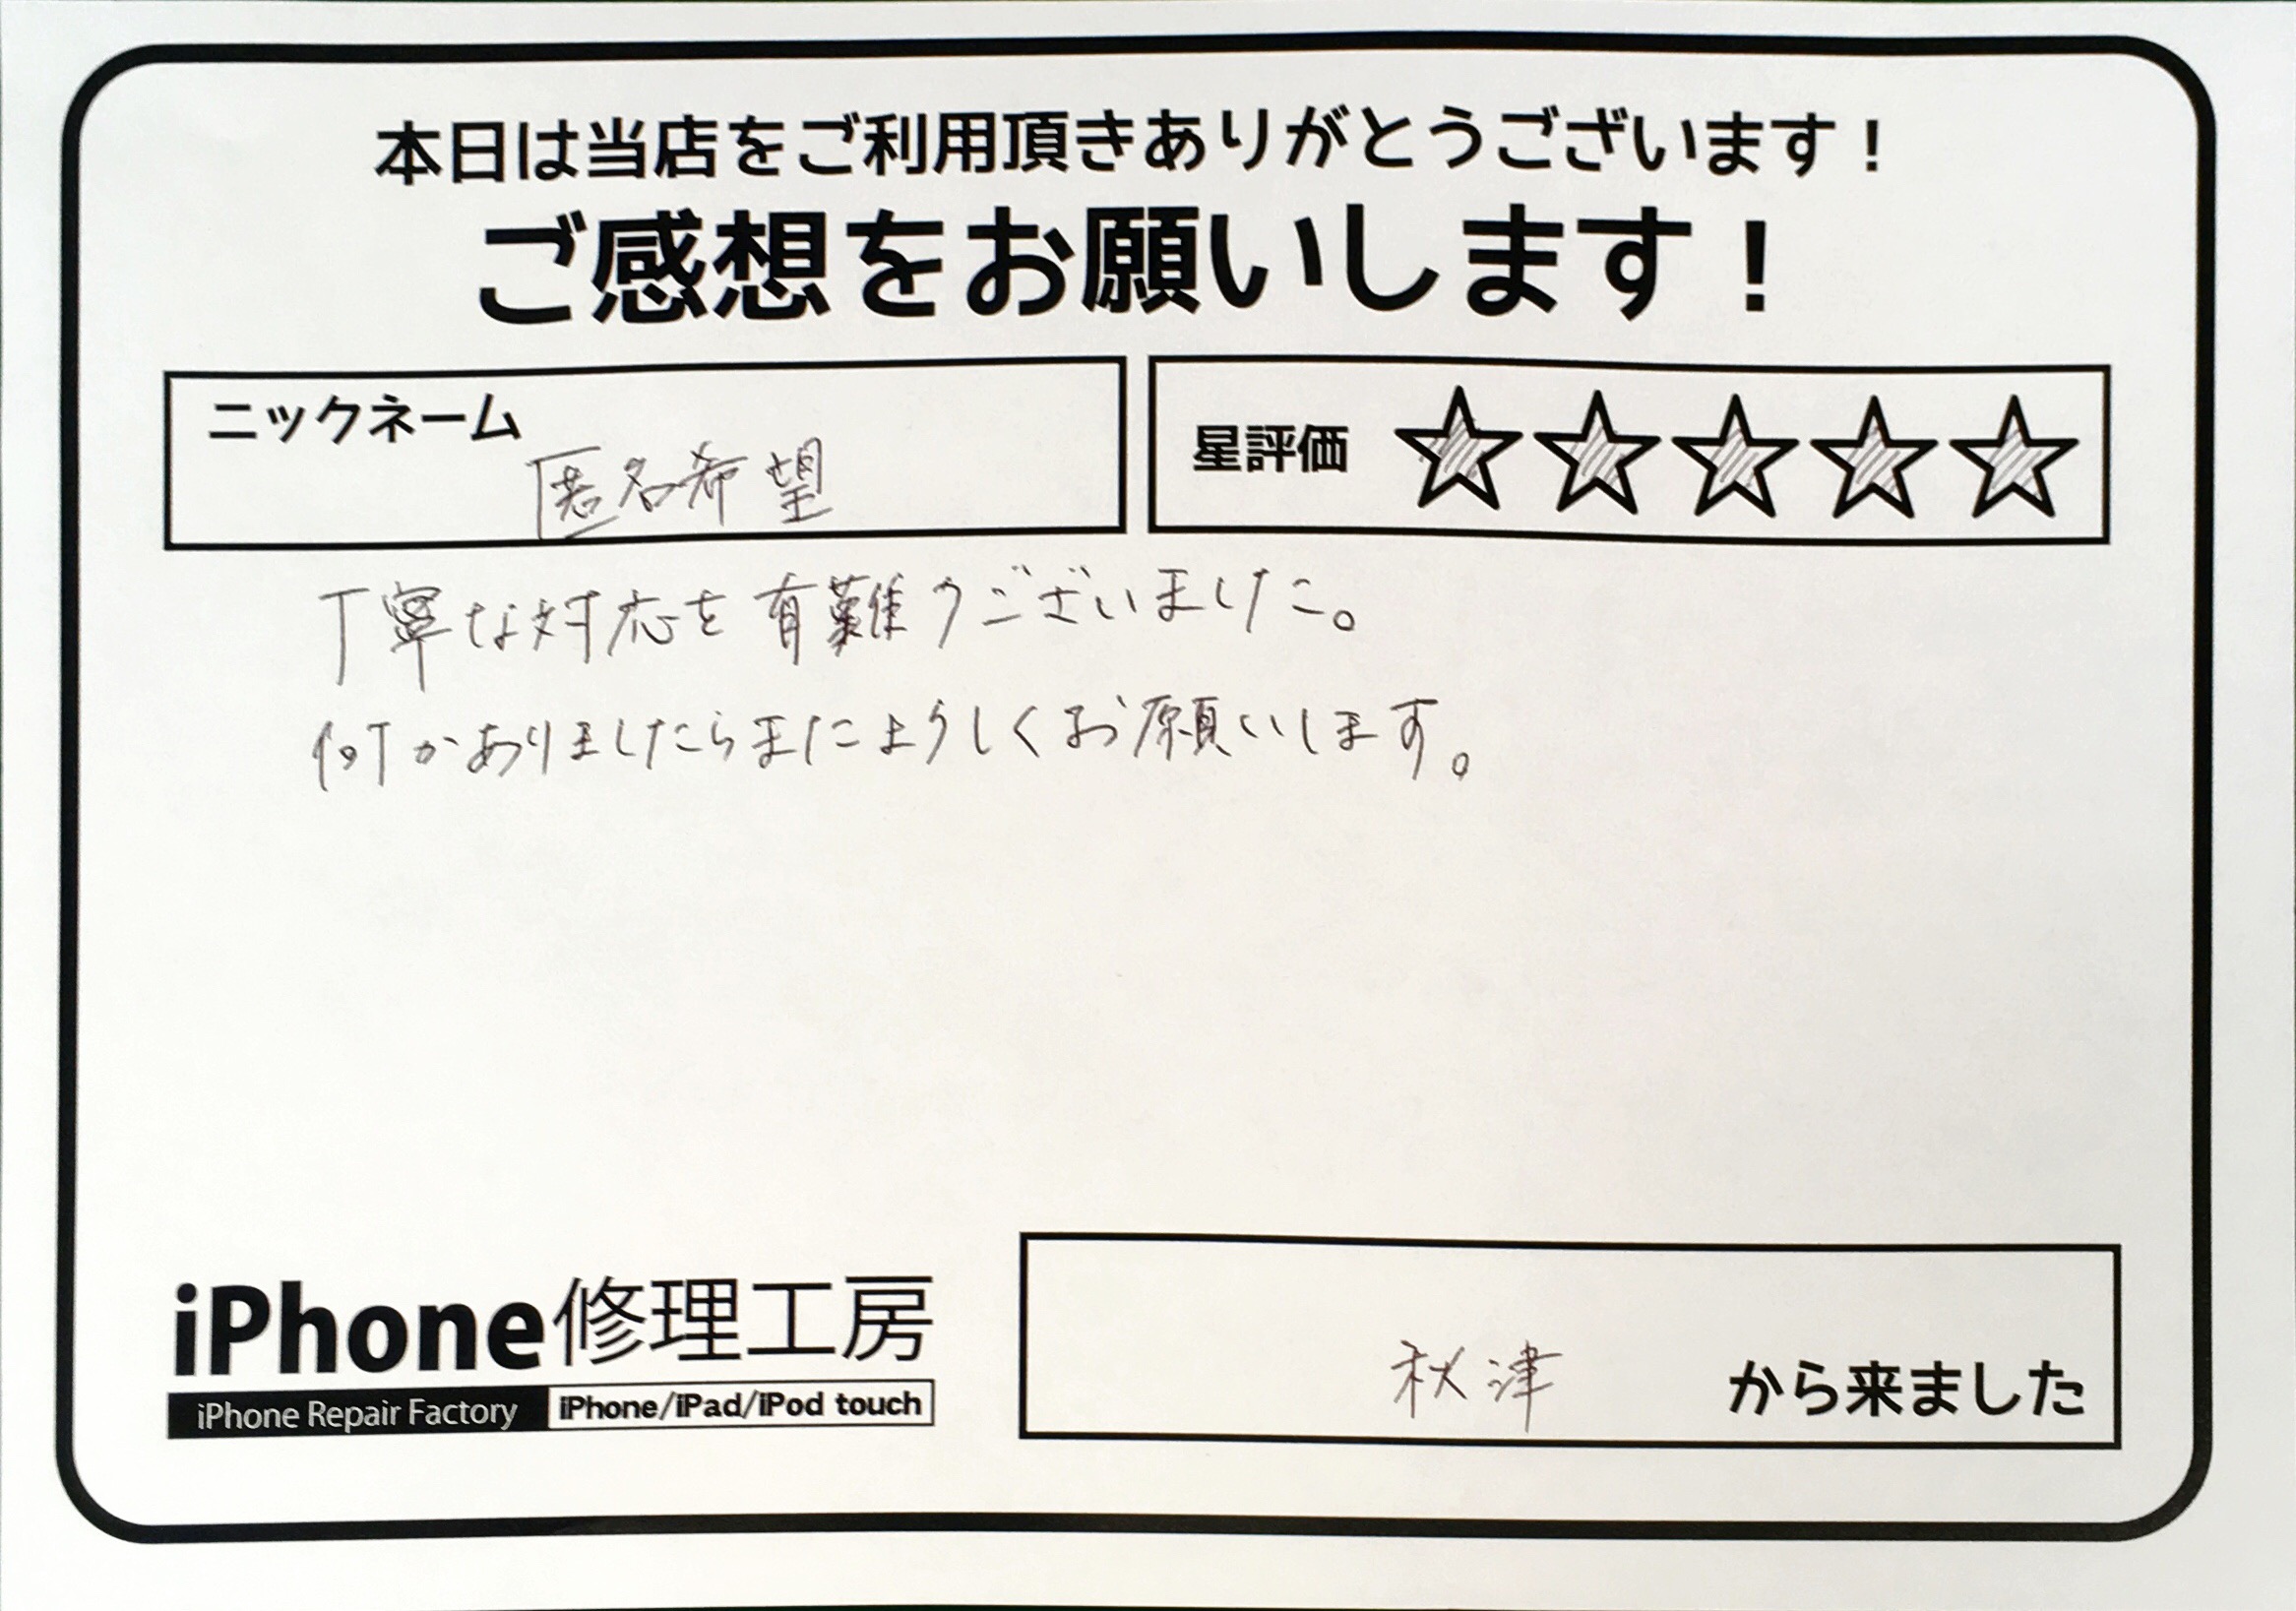 本日は当店をご利用頂きありがとうございます！
ご感想をお願いします！
ニックネーム
匿名希望
星評価 ☆☆☆☆☆
丁寧な対応を有難うございました。
何かありましたらまたよろしくお願いします。
iPhone修理工房
iPhone Repair Factory iPhone/iPad/iPod touch
秋津 から来ました